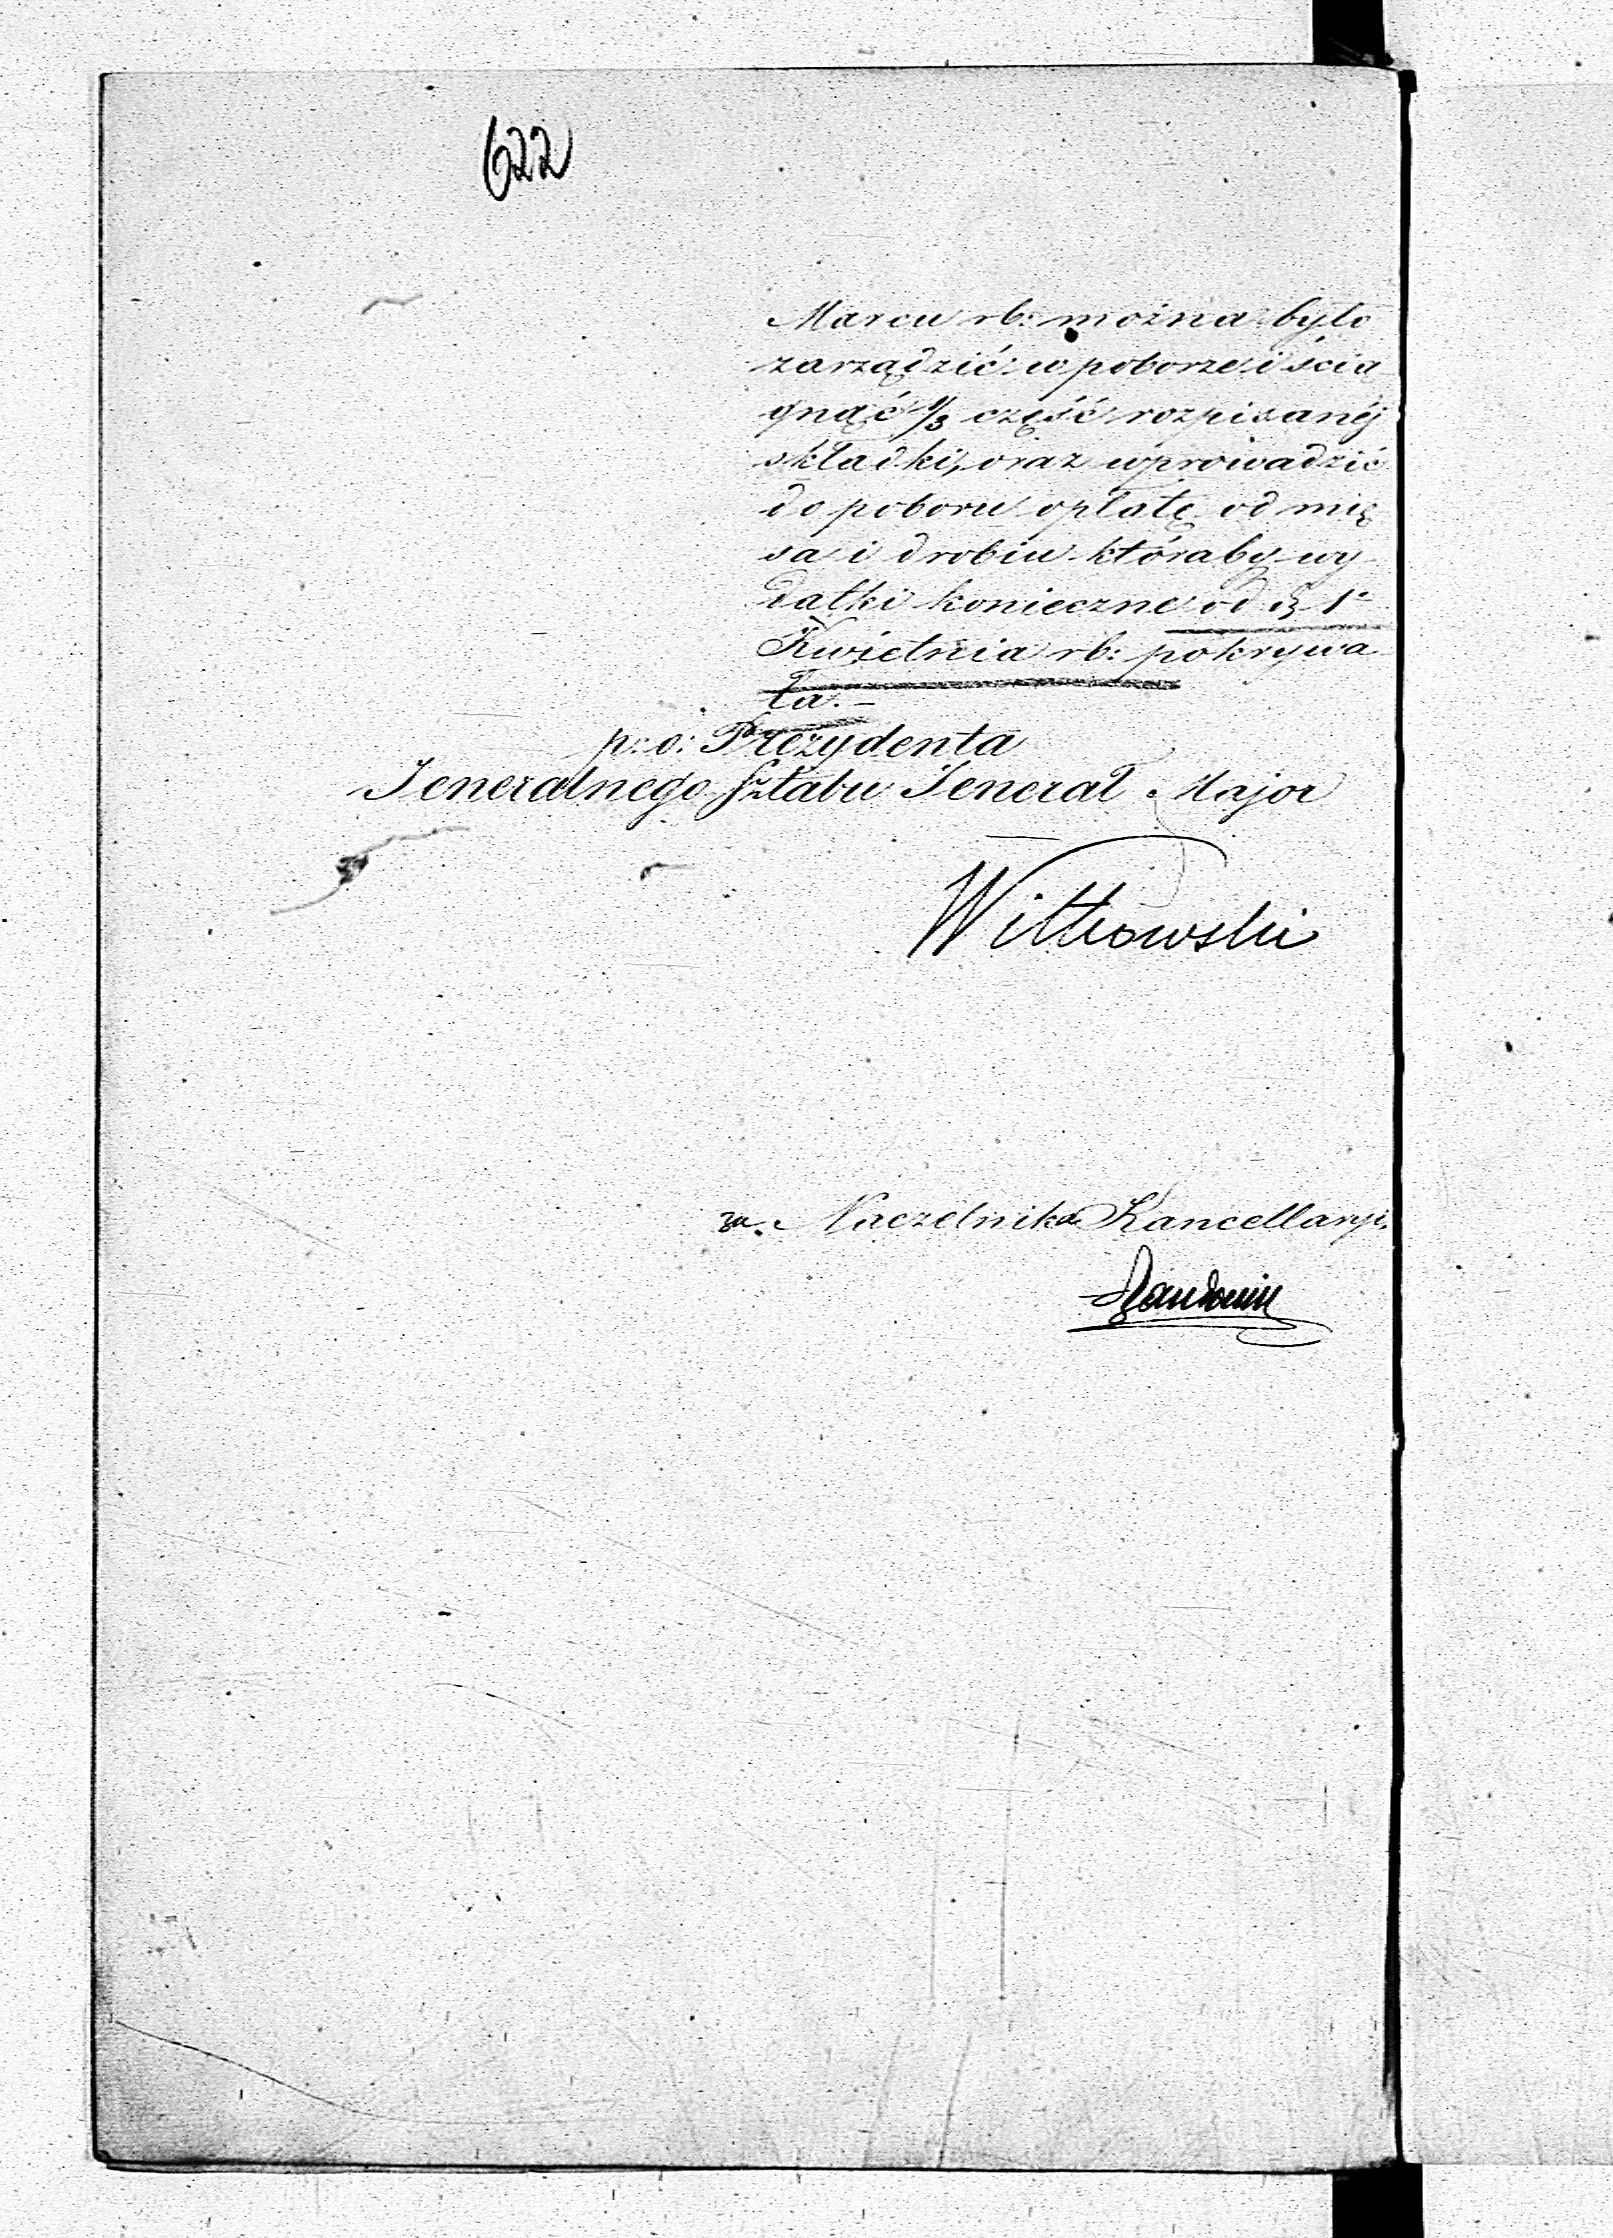 622
Marcu rb: można było
zarządzić w poborze i ścią
gnąć 1/3 część rozpisanéj
składki, oraz wprowadzić
do poboru opłatę od mię
sa i drobiu któraby wy
datki konieczne od d. 1º
Kwietnia rb: pokrywa
ła.—
p: o: Prezydenta
Jeneralnego Sztabu Jenerał Major
Witkowski
za. Naczelnika Kancellaryi